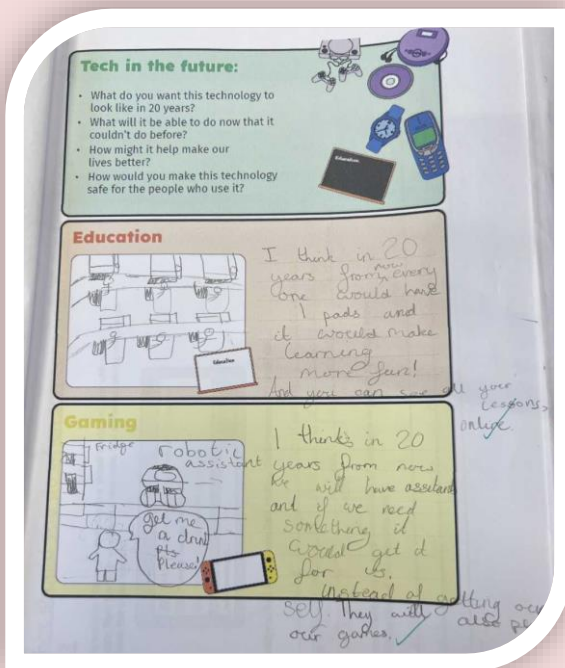 Tech in the future:
• What do you want this technology to
look like in 20 years?
• What will it be able to do now that it
couldn't do before?
• How might it help make our
lives better?
• How would you make this technology
safe for the people who use it?
Education
Education
I think in 20
years from now every
one would have
I pads and
it would make
learning
more fun!
And you can see all your
lessons
online.
Education
Gaming
Fridge
robotic
assistant
get me
a drink
pls
Please!
I thinks in 20
years from now
we will have assitant
and if we need
something it
would get it
for us.
instead of getting our
self. They will also pl
our games.